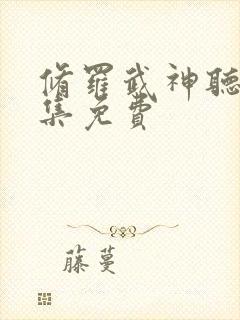 脩羅武神聽
集免費
藤蔓